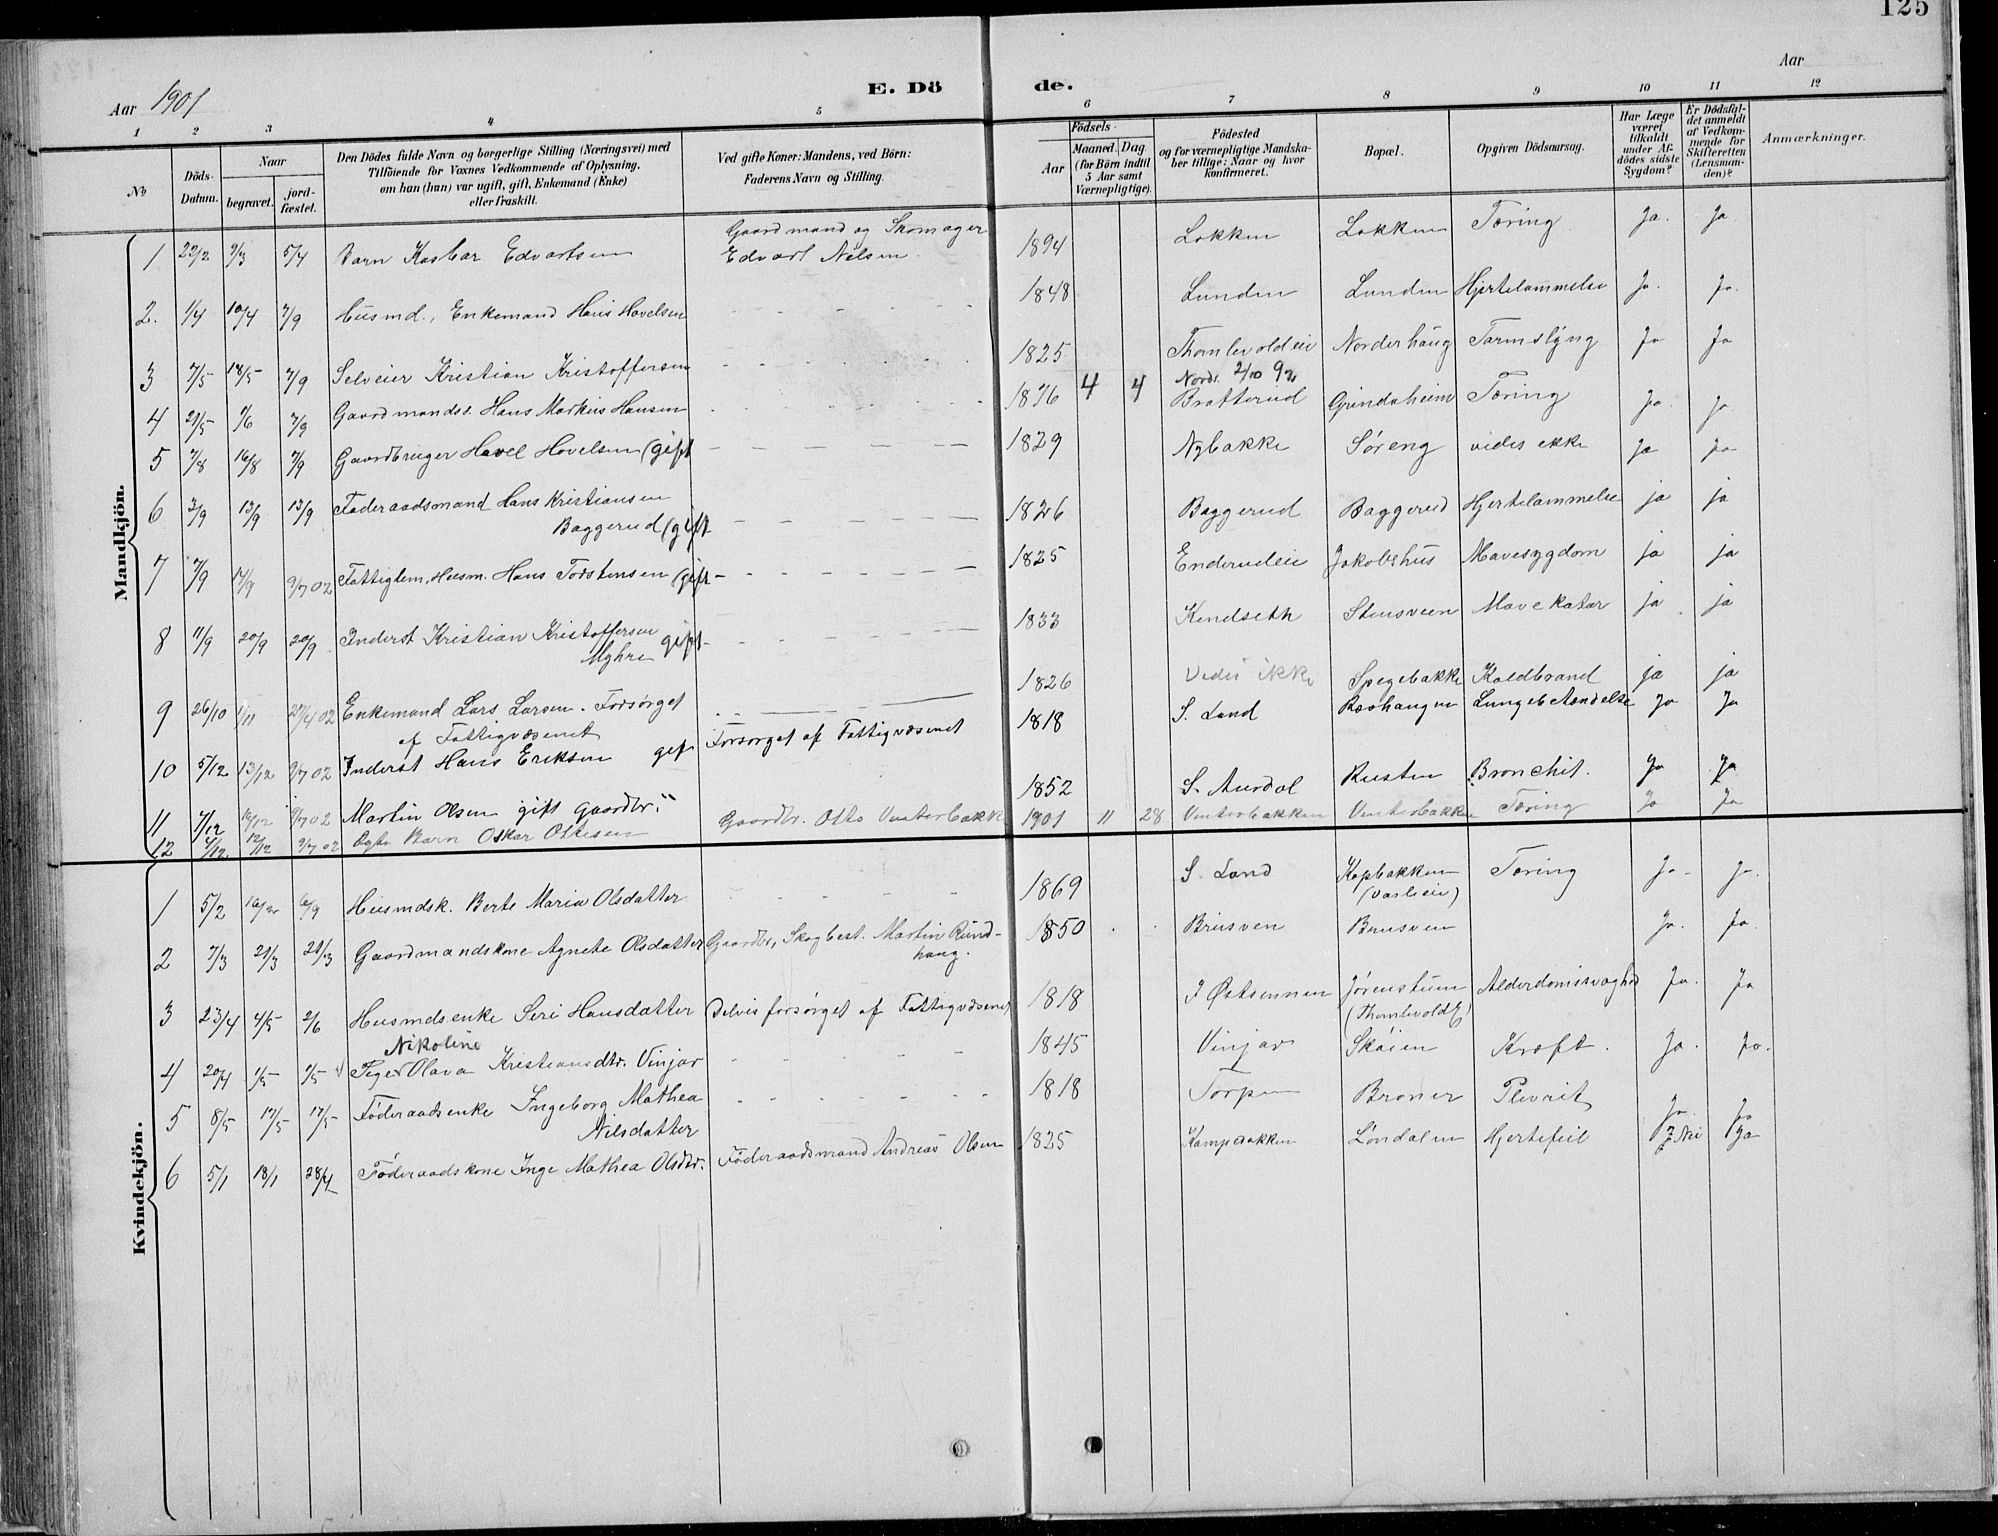 125
Aar 1901
E. Dö de.
Aar
1 2 3 4 5 6 7 8 9 10 11 12
No
Döds-Datum.
Naar
begravet.
jord-fæstet.
Den Dödes fulde Navn og borgerlige Stilling (Næringsvei) med
Tilföiende for Voxnes Vedkommende af Oplysning,
om han (hun) var ugift, gift, Enkemand (Enke)
eller fraskilt.
Ved gifte Koner: Mandens, ved Börn:
Faderens Navn og Stilling.
Födsels-
Aar
Maaned. Dag
(for Börn indtil
5 Aar samt
Værnepligtige).
Födested
og for værnepligtige Mandska-
ber tillige: Naar og hvor
konfirmeret.
Bopæl.
Opgiven Dödsaarsag.
Har Læge
været
tilkaldt
under Af-
dödes sidste
Sygdom?
Er Dödsfal-
det anmeldt
af Vedkom-
mende for
Skifteretten
(Lensman-
den)?
Anmærkninger.
Mandkjön.
1 22/2 9/3 5/4 Barn Kasbar Edvartsen Gaardmand og Skomager
Edvart Nilsen. 1894 Løkken Løkken Tæring Ja. Ja.
2. 1/4 10/4 7/9 Husmd., Enkemand Hans Hovelsen 1848 Lunden Lunden Hjertelammelse Ja. Ja.
3 7/5 18/5 7/9 Selveier Kristian Kristoffersen 1825 Thomlevoldeie Norderhaug Tarmslyng Ja Ja
4 29/5 9/6 7/9 Gaardmandss. Hans Markus Hansen 1876 4 4 Nords. 2/10 92
Bratterud Grindaheim Tæring Ja. Ja.
5 7/8 16/8 7/9 Gaardbruger Hovel Hovelsen (gift 1829 Nybakke Søreng vides ikke Ja Ja
6 3/9 13/9 13/9 Føderaadsmand Hans Kristiansen
Baggerud (gift 1826 Baggerud Baggerud Hjertelammelse ja ja
7 7/9 17/9 9/7 02 Fattiglem, Husm. Hans Torstensen (gift 1825 Enderudeie Jakobshus Mavesygdom ja ja
8 11/9 20/9 20/9 Inderst Kristian Kristoffersen
Myhre gift 1833 Kindseth Stensveen Mavekatar ja ja
9 26/10 1/11 27/4 02 Enkemand Lars Larsen. Forsørget
af Fattigvæsenet 1826 Vides ikke Spegebakke Koldbrand ja ja
10 5/12 13/12 9/7 02 Inderst Hans Eriksen gift Forsørget af Fattigvæsenet 1818 S. Land Røshaugen Lungebetændelse Ja Ja
11 7/12 16/12 9/7 02 Martin Olsen gift Gaardbr. 1852 S. Aurdal Rusten Bronchit. Ja Ja
12 4/12 12/12 9/7 02 Ægte Barn Oskar Ottesen Gaardbr. Otto Vinterbakk 1901 11 28 Vinterbakken Vinterbakken Tæring Ja Ja
Kvindekjön.
1 5/2 16/2 6/9 Husmdsk. Berte Maria Olsdatter 1869 S. Land Kopbakken
(Vaslieie) Tæring Ja. Ja.
2 7/3 21/3 21/3 Gaardmandskone Agnete Olsdatter Gaardbr, Skogbest. Martin Rund-
haug. 1850 Brusven Brusven Ja. Ja.
3 23/4 4/5 2/6 Husmdsenke Siri Hansdatter Delvis forsørget af Fattigvæsenet 1818 I Østsinnen Jørenstuen
(Thomlevoldej) Alderdomssvaghed Ja. Ja
4 20/4 1/5 1/5 Nikoline
Pige Olava Kristiansdtr. Vinjar 1845 Vinjar Skøien Kræft. Ja. Ja.
5 8/5 17/5 17/5 Føderaadsenke Ingeborg Mathea
Nilsdatter 1818 Torpen Broner Plevrit Ja Ja
6 5/1 18/1 28/4 Føderaadskone Inge Mathea Olsdtr. Føderaadsmand Andreas Olsen 1825 Kampebakken Løndalen Hjertefeil Nei Ja